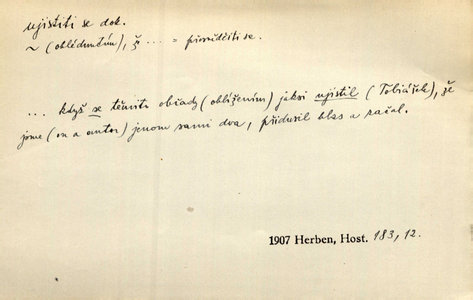 ujistiti se dok.
~ (ohlédnutím), ž ... = přesvědčiti se.
... když se těmito obřady (obhlížením) jaksi ujistil (Tobiášek), že
jsme (on a autor) jenom sami dva, přidusil hlas a začal.
1907 Herben, Host. 183, 12.